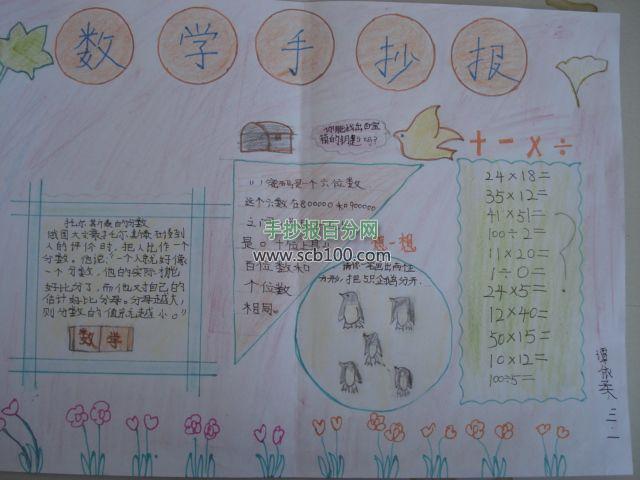 数学手抄报
你能找出百宝
箱的钥匙吗?
+ - × ÷
托尔斯泰的分数
俄国大文豪托尔斯泰在谈到
人的评价时,把人比作一个
分数。他说:"一个人就好像
一个分数,他的实际才能
好比分子,而他对自己的
估计好比分母。分母越大,
则分数的值就越小。"
数学
(1)密码是一个六位数
这个六数在800000和900000
之
是0 十位上
百位数和
个位数
相同。
手抄报百分网
www.scb100.com
想一想
请你一笔画出两个
方形,把5只企鹅分开。
24×18=
35×12=
41×51=
100÷2=
11×20=
1÷0=
24×5=
12×40=
50×15=
10×12=
100÷5=
三.一